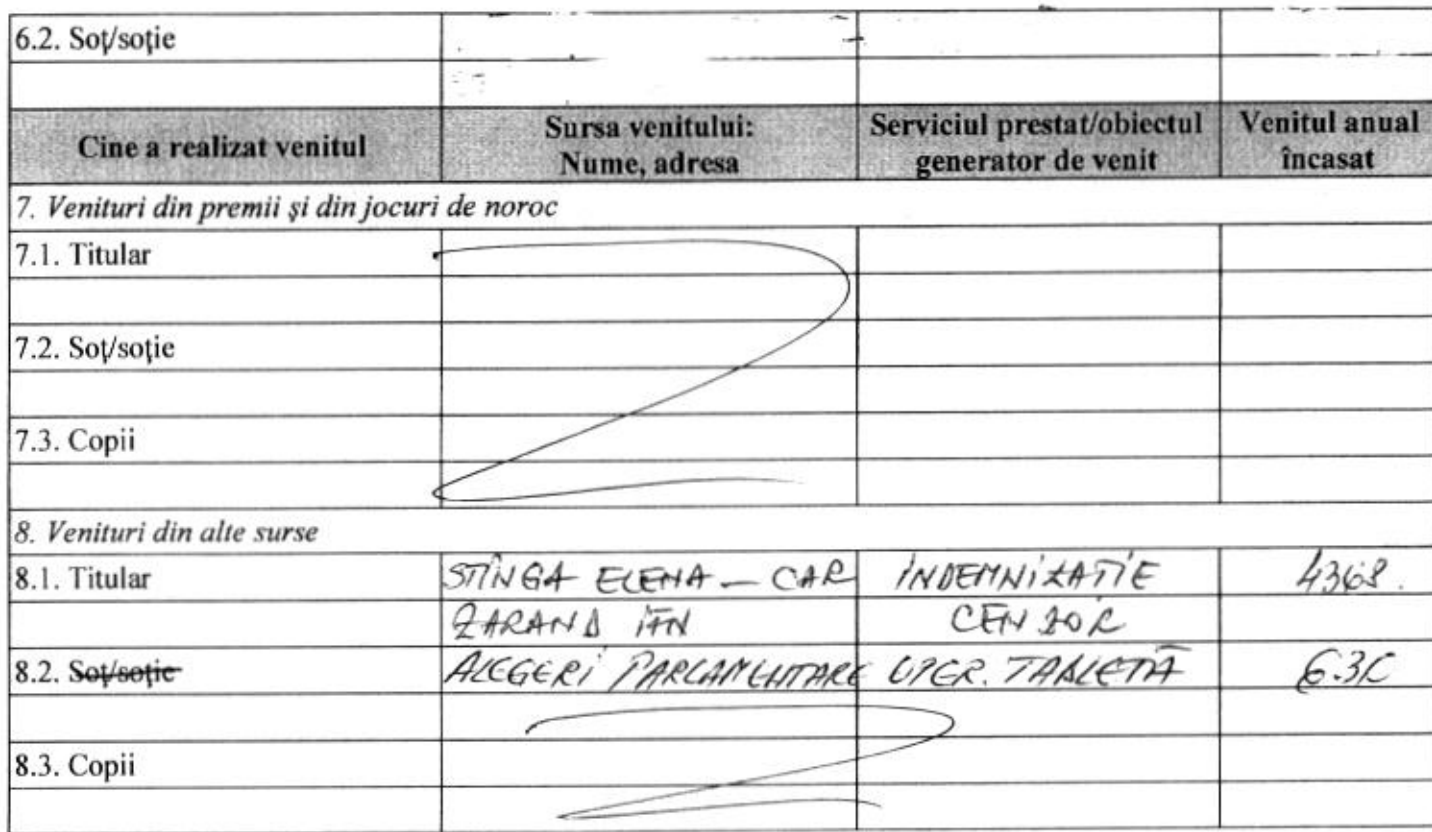 6.2. Soţ/soţie
Cine a realizat venitul Sursa venitului: Nume, adresa Serviciul prestat/obiectul generator de venit Venitul anual încasat
7. Venituri din premii şi din jocuri de noroc
7.1. Titular
7.2. Soţ/soţie
7.3. Copii
8. Venituri din alte surse
8.1. Titular STÎNGA ELENA – CAR INDEMNIZATIE 4368.
ZARAND IFN CENZOR
8.2. Soţ/soţie ALEGERI PARLAMENTARE OPER. TABLETĂ
8.3. Copii